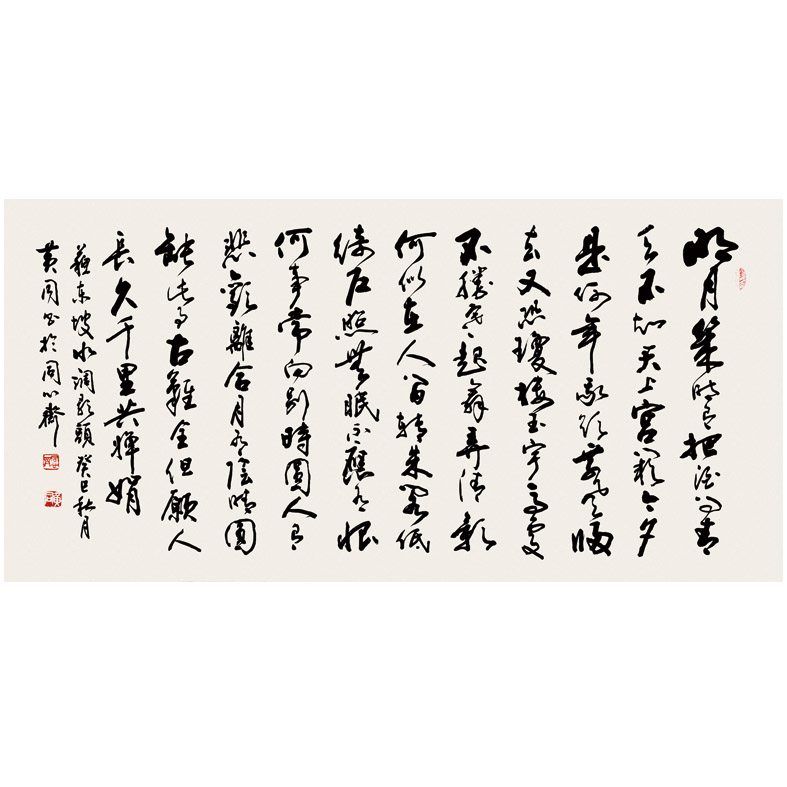 明月幾時有把酒問青
天不知天上宮闕今夕
是何年我欲乘風歸
去又恐瓊樓玉宇高處
不勝寒起舞弄清影
何似在人間轉朱閣低
綺户照無眠不應有恨
何事常向別時圓人有
悲歡離合月有陰晴圓
缺此事古難全但願人
長久千里共嬋娟
蘇東坡水調歌頭癸巳秋月
黄周書於同心齋